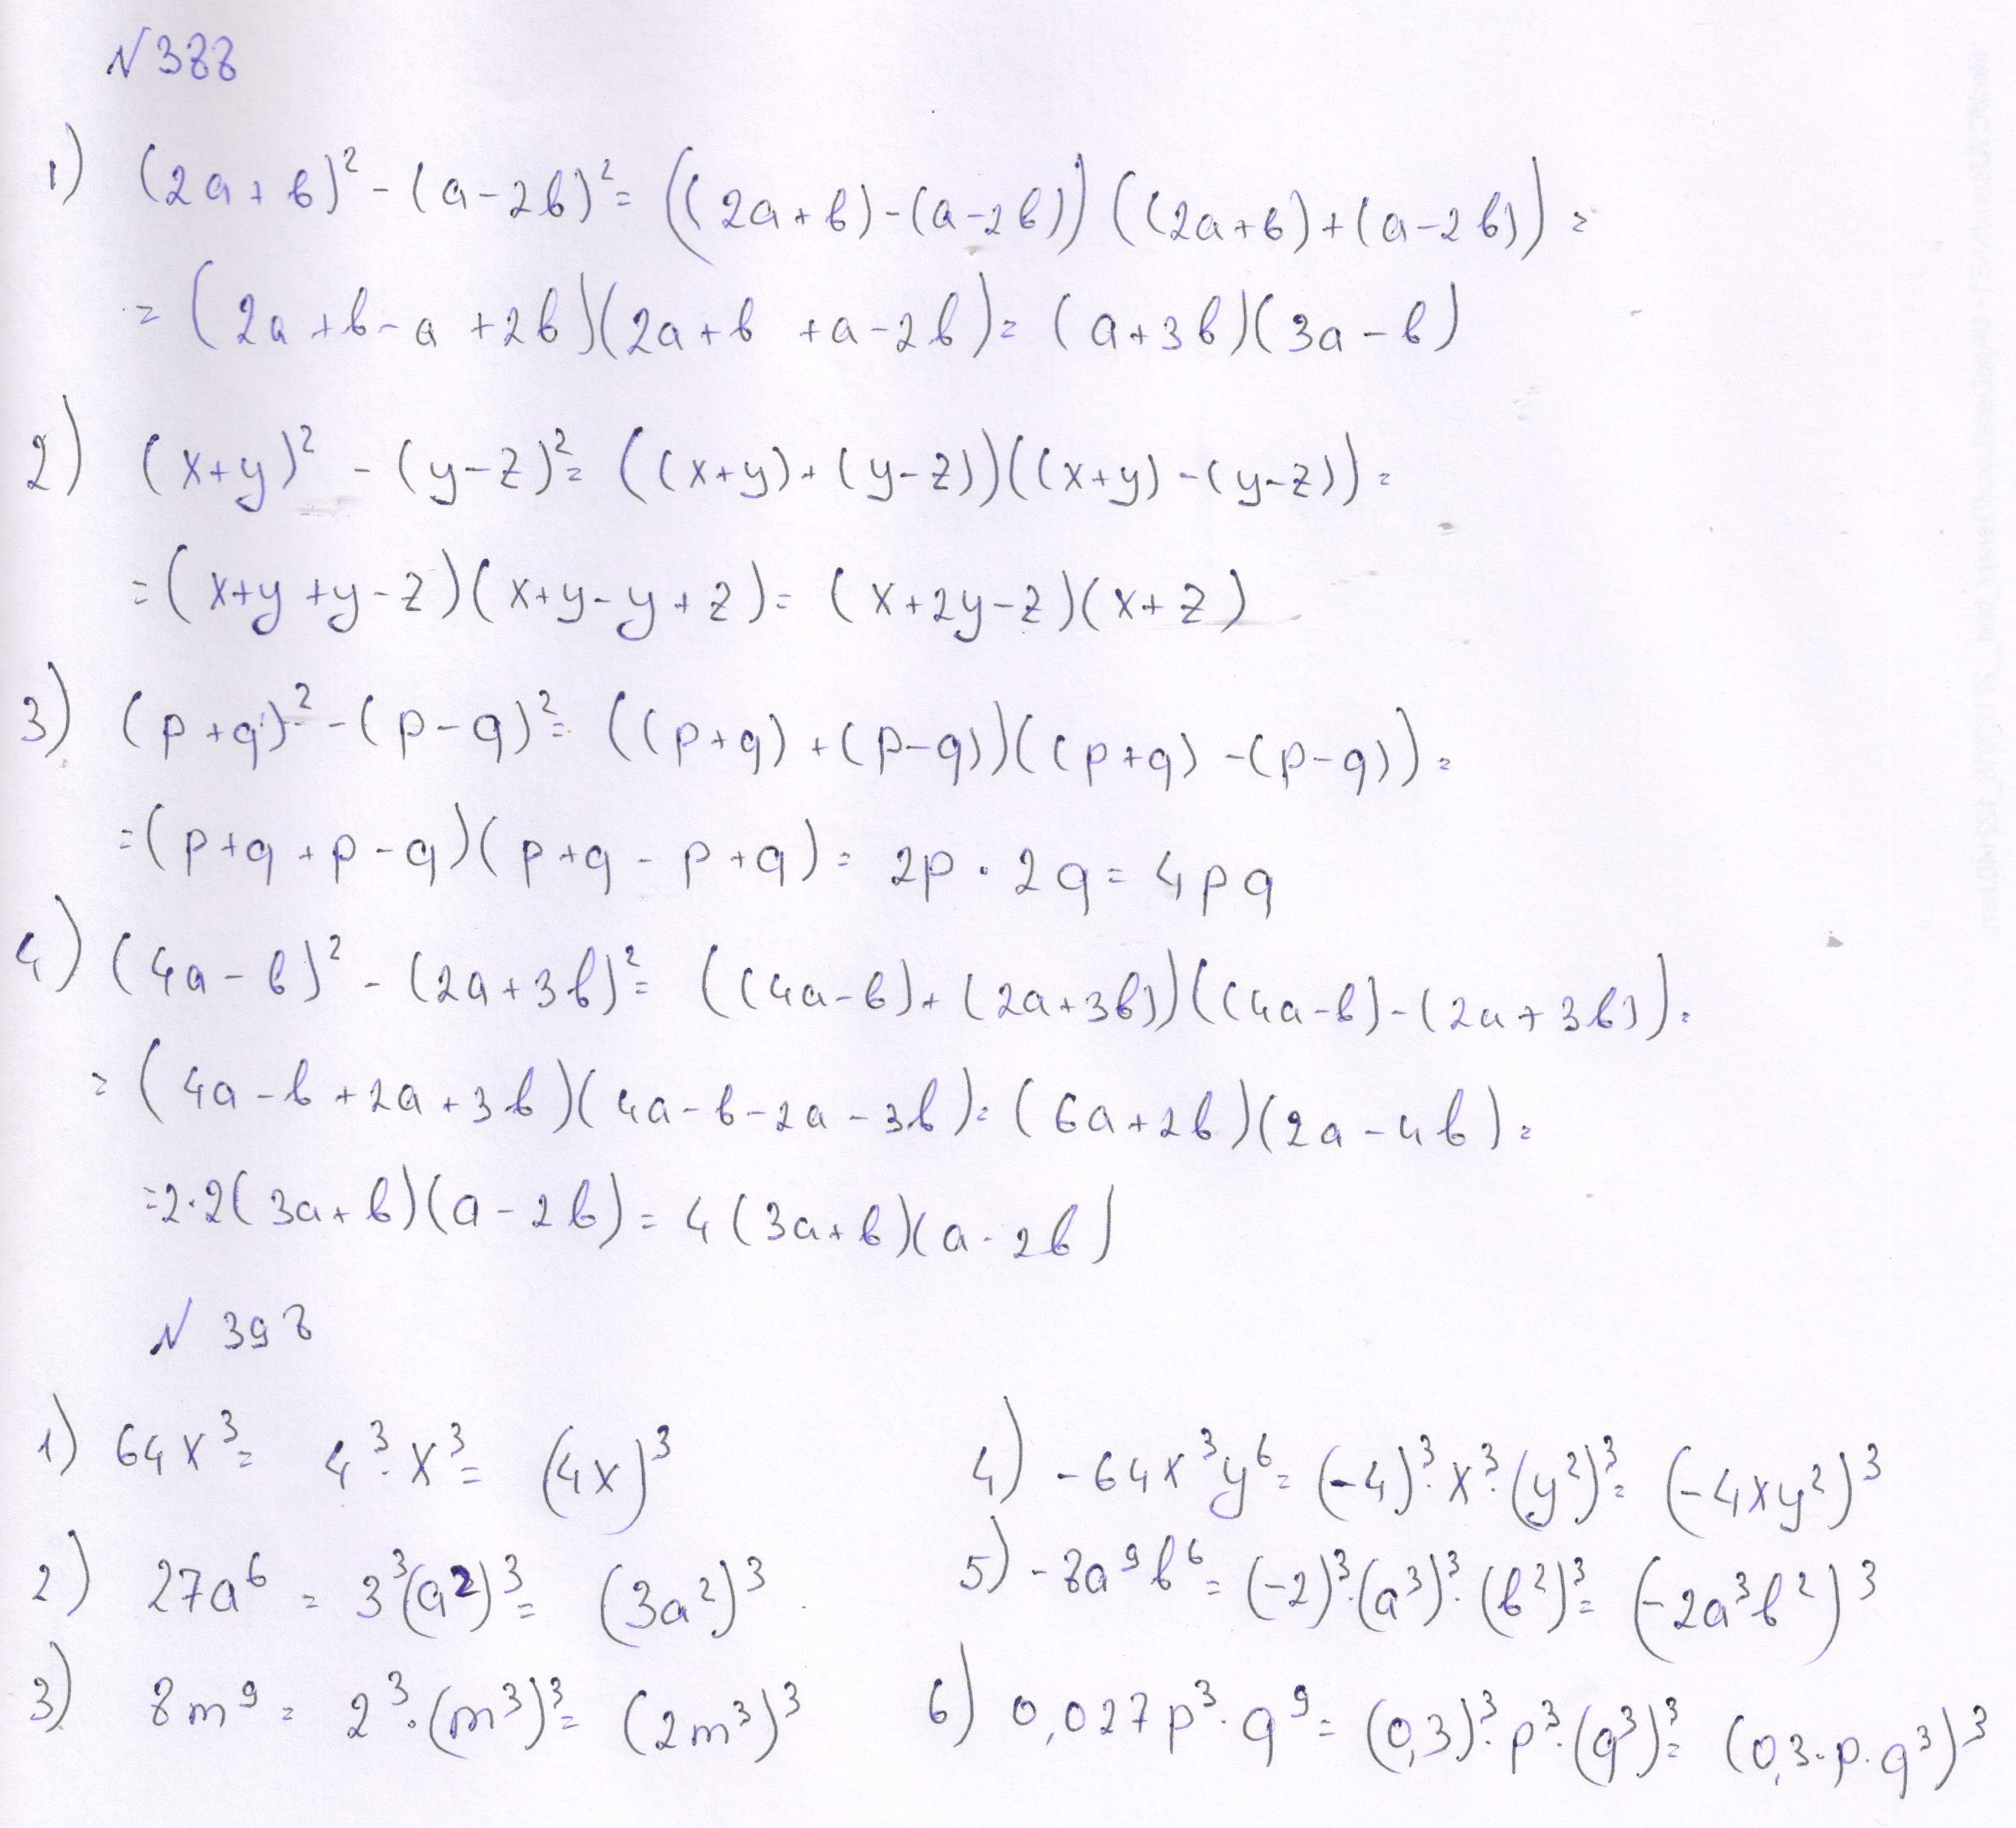 № 388
1) (2a+b)² - (a-2b)² = ((2a+b)-(a-2b)) ((2a+b)+(a-2b)) =
= (2a+b-a+2b)(2a+b+a-2b) = (a+3b)(3a-b)
2) (x+y)² - (y-z)² = ((x+y)+(y-z))((x+y)-(y-z)) =
= (x+y+y-z)(x+y-y+z) = (x+2y-z)(x+z)
3) (p+q)² - (p-q)² = ((p+q)+(p-q))((p+q)-(p-q)) =
= (p+q+p-q)(p+q-p+q) = 2p · 2q = 4pq
4) (4a-b)² - (2a+3b)² = ((4a-b)+(2a+3b))((4a-b)-(2a+3b)) =
= (4a-b+2a+3b)(4a-b-2a-3b) = (6a+2b)(2a-4b) =
= 2·2(3a+b)(a-2b) = 4(3a+b)(a-2b)
№ 398
1) 64x³ = 4³·x³ = (4x)³
2) 27a⁶ = 3³(a²)³ = (3a²)³
3) 8m⁹ = 2³·(m³)³ = (2m³)³
4) -64x³y⁶ = (-4)³·x³·(y²)³ = (-4xy²)³
5) -8a⁹b⁶ = (-2)³·(a³)³·(b²)³ = (-2a³b²)³
6) 0,027p³·q⁹ = (0,3)³·p³·(q³)³ = (0,3·p·q³)³